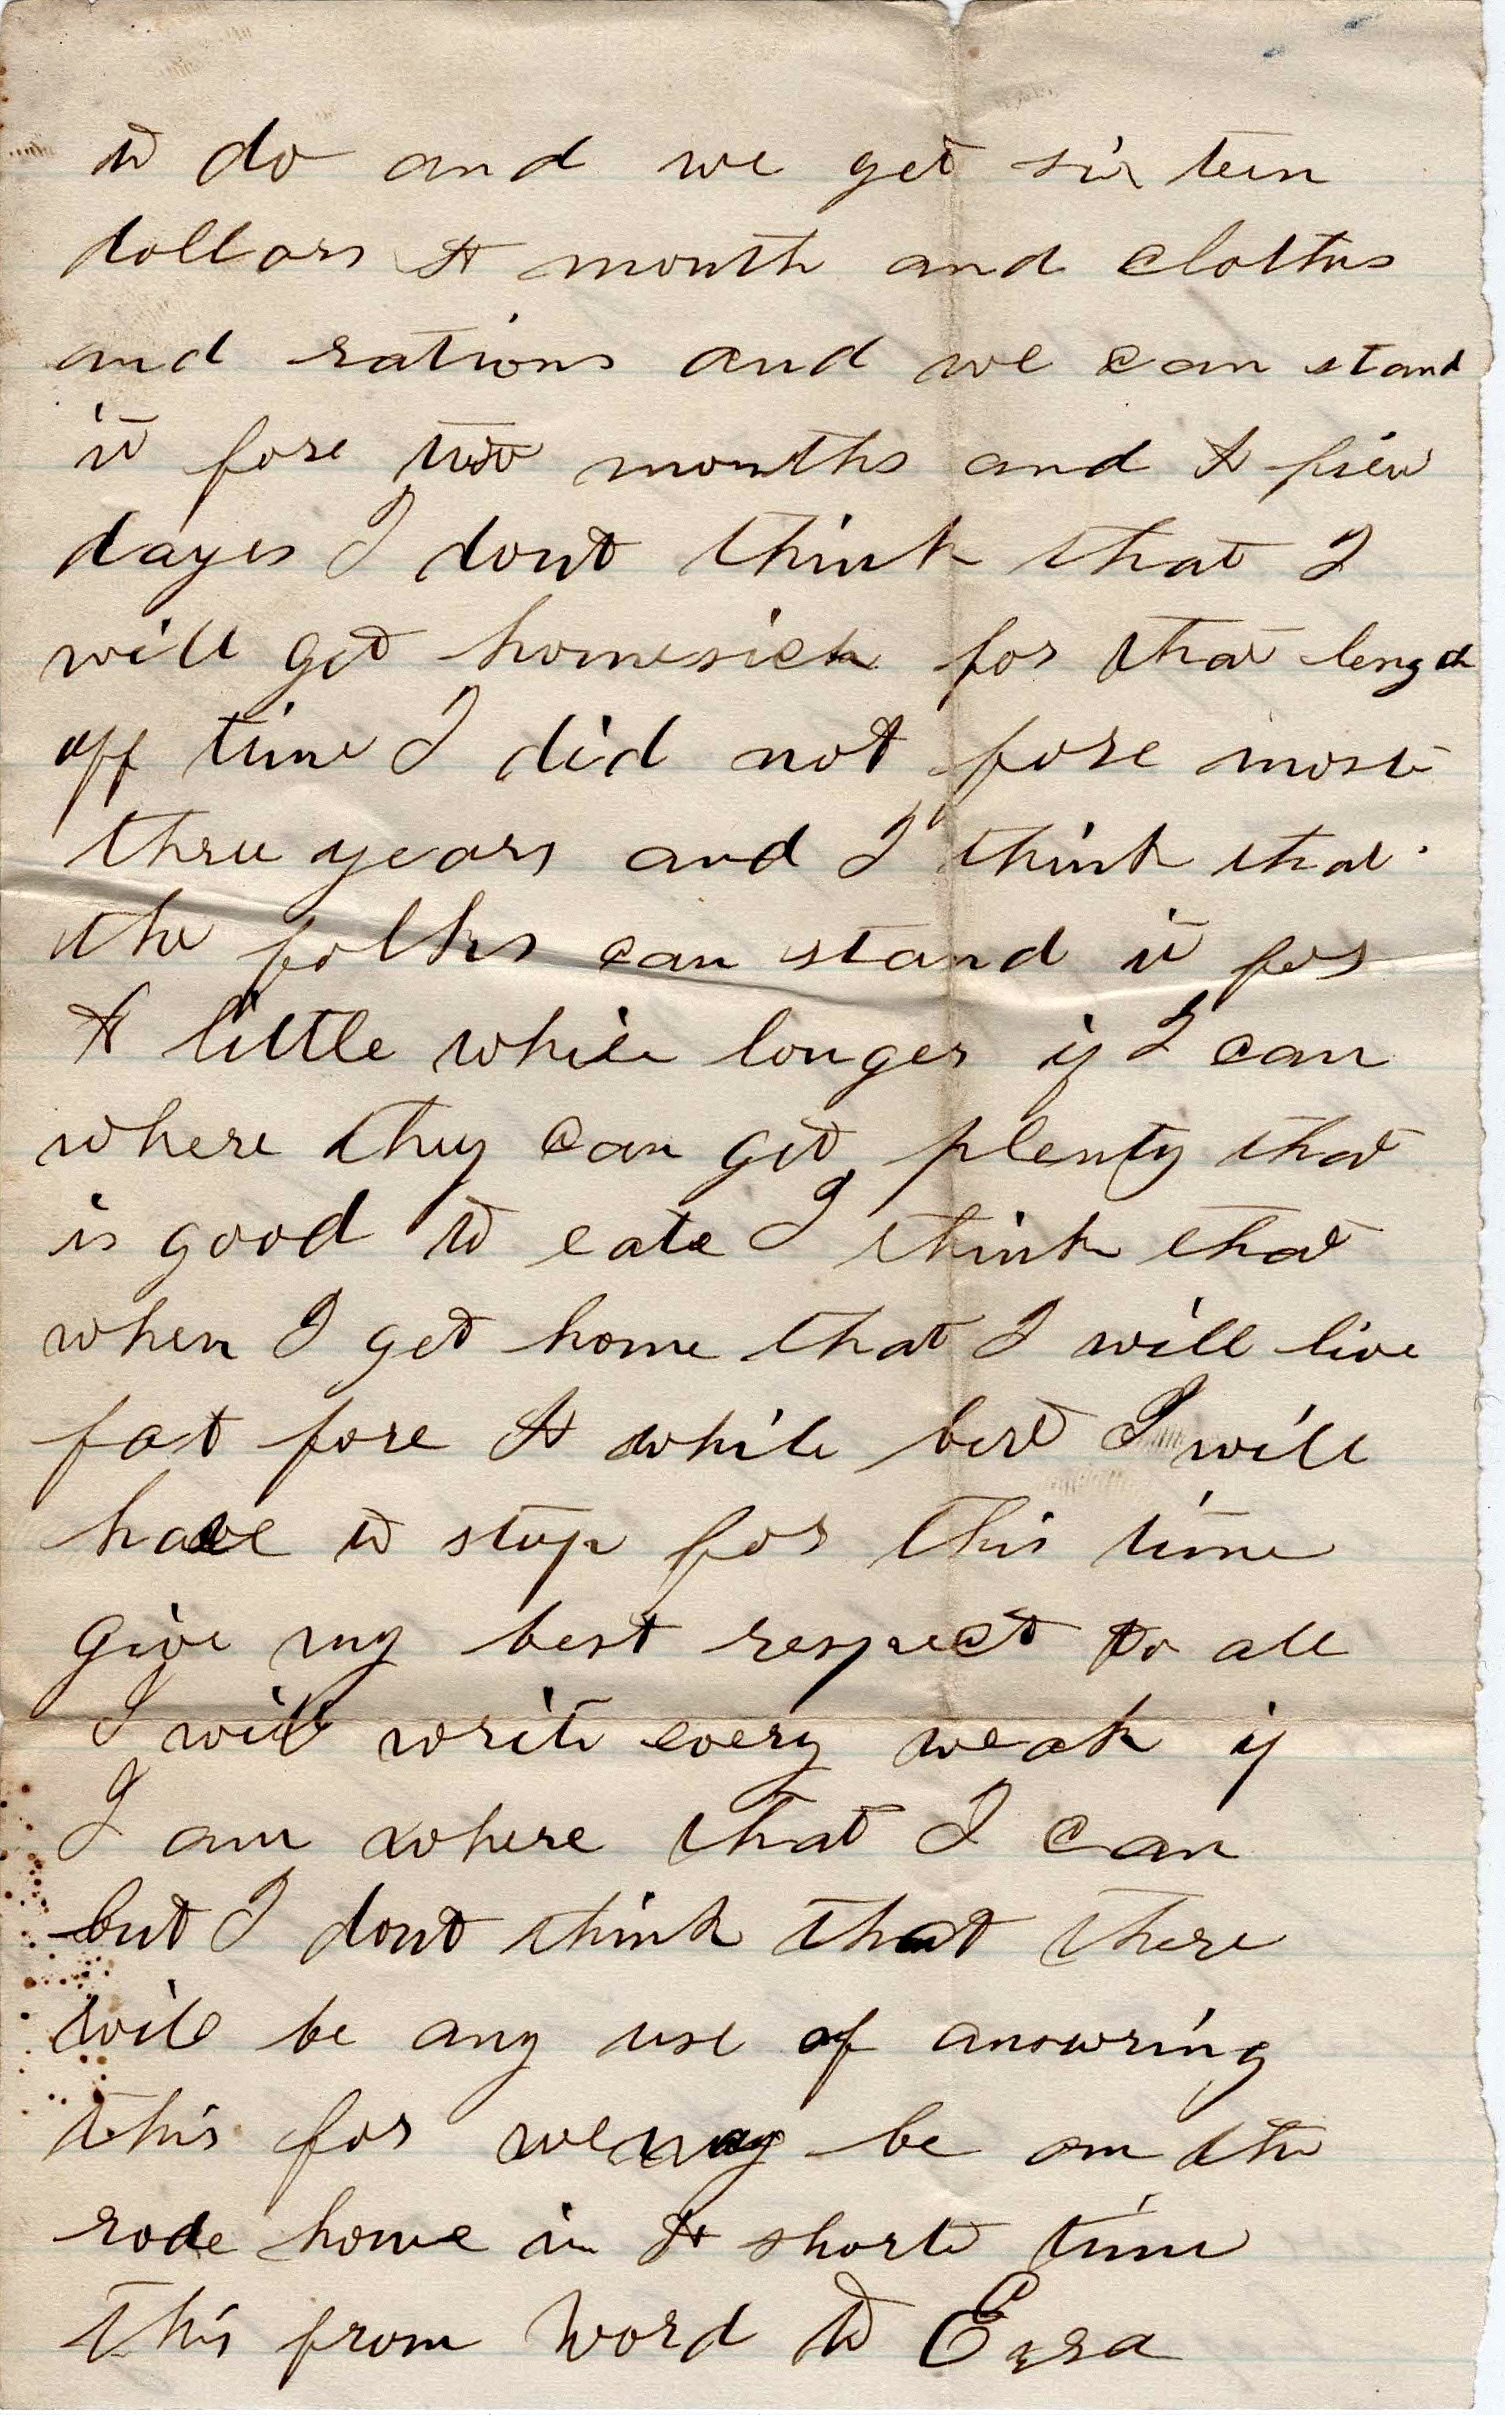 to do and we get sixteen
dollars A month and clothes
and rations and we can stand
it fore two months and A fiew
dayes I dont think that I
will get homesick for that length
off time I did not fore most
three years and I think that
the folks can stand it for
A little while longer if I can
where they can get plenty that
is good to eate I think that
when I get home that I will live
fat fore A while but I will
have to stop for this time
Give my best respect to all
I will write every weak if
I am where that I can
but I dont think that there
will be any use of answring
this for we may be on the
rode home in A short time
this from Word to Ezra